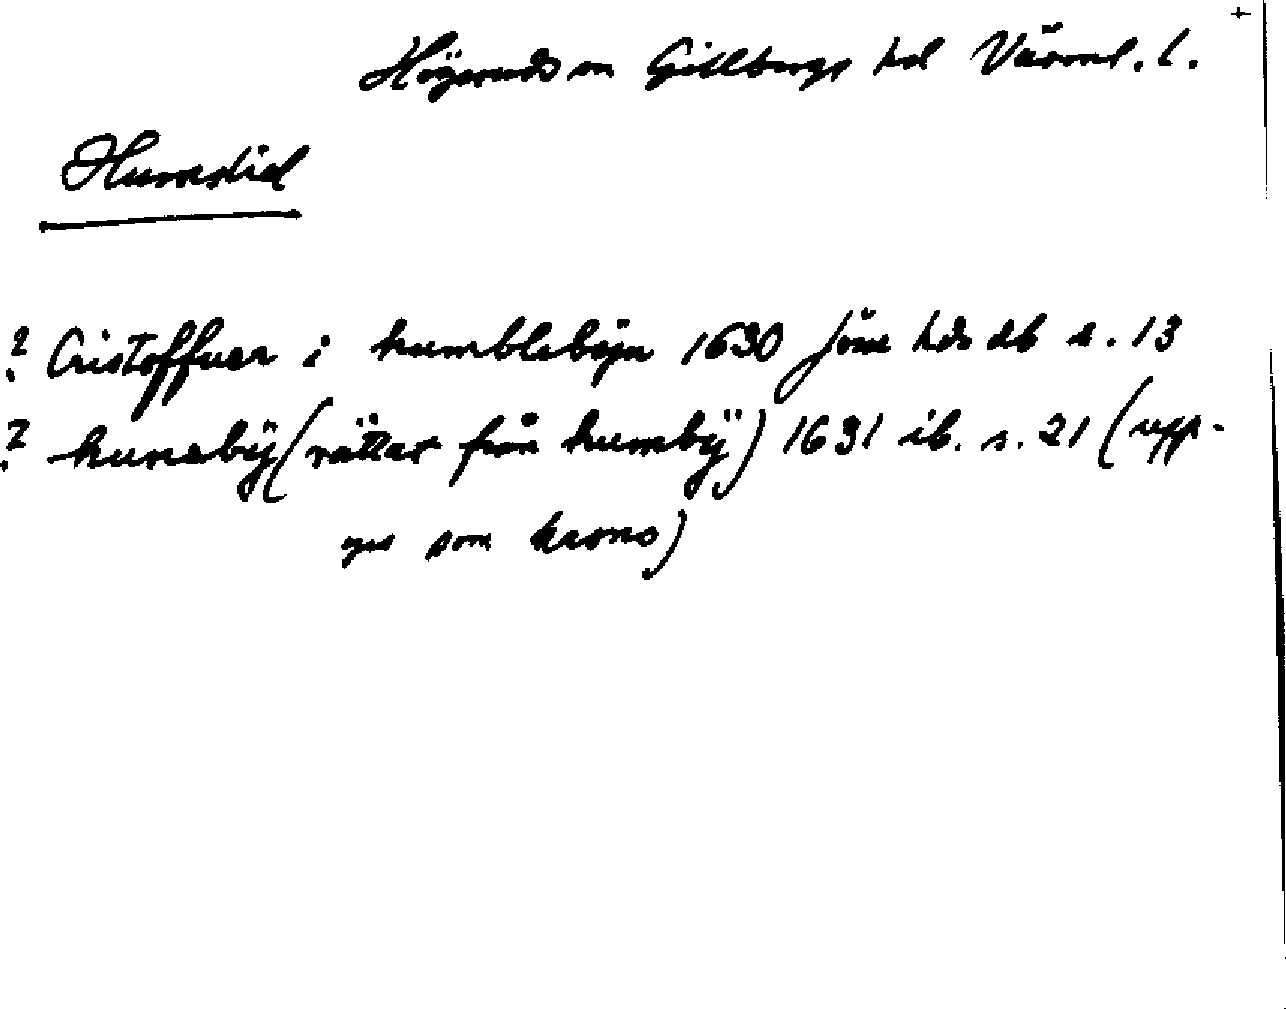 Högeruds sn Gillbergs hd Värml. l.
Humstid
? Cristoffuer i humblebÿn 1630 Jösse hds db s. 13
? huneby (rättat från humbÿ) 1631 ib. s. 21 (upp-
ges som krono)